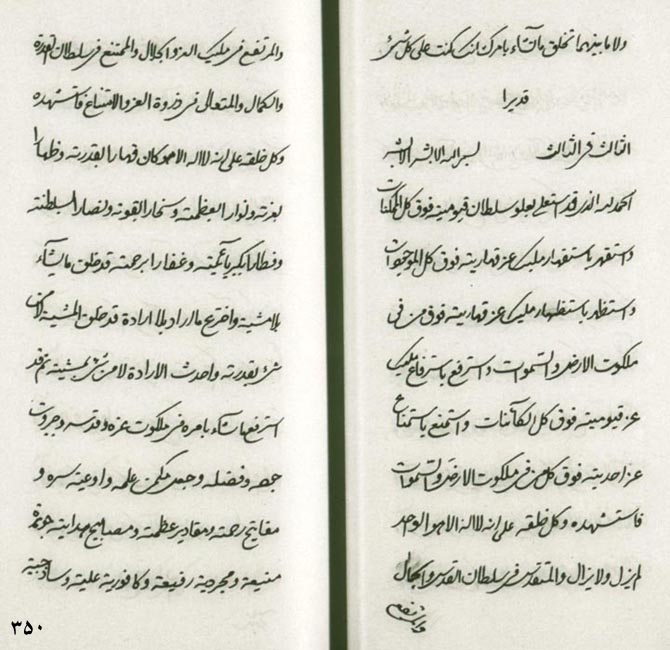 ولا ما بينهما تخلق ما تشاء بامرك انك كنت على كل شيء
قديرا
الثالث في الثالث بسم الله الابشر الابشر
الحمد لله الذي قد استعلى بعلو سلطان قيوميته فوق كل الممكنات
واستقهر باستقهار مليك عز قهاريته فوق كل الموجودات
واستظهر باستظهار مليك عز قهاريته فوق من في
ملكوت الارض والسموات واسترفع باسترفاع مليك
عز قيوميته فوق كل الكائنات واستمنع باستمناع
عز احديته فوق كل من في ملكوت الارض والسموات
فاستشهده وكل خلقه على انه لا اله الا هو الواحد
لم يزل ولا يزال والمتقدس في سلطان القدس والجمال
والمرتفع
والمرتفع في مليك العز والجلال والممتنع في سلطان القدرة
والكمال والمتعالي في ذروة العز والامتناع فاستشهده
وكل خلقه على انه لا اله الا هو كان قهارا بقدرته وظهارا
بعزته ونوار العظمته وسخار القوته ونصار السلطنته
وفطارا بكبريائيته وغفارا برحمته قد خلق ما يشاء
بالمشية واخترع ما اراد بالارادة قد خلق المشية لا من
شيء بقدرته واحدث الارادة لا من شيء بمشيته ثم قد
استرفعها شاء بامره في ملكوت عزه وقدسه وجبروت
وفضله وجعل مكمن علمه واوعية سره و
مفاتيح رحمته ومقادير عظمته ومصابيح هدايته
منيعة ومجردية رفيعة وكافورية علية وساذجية
٣٥٠